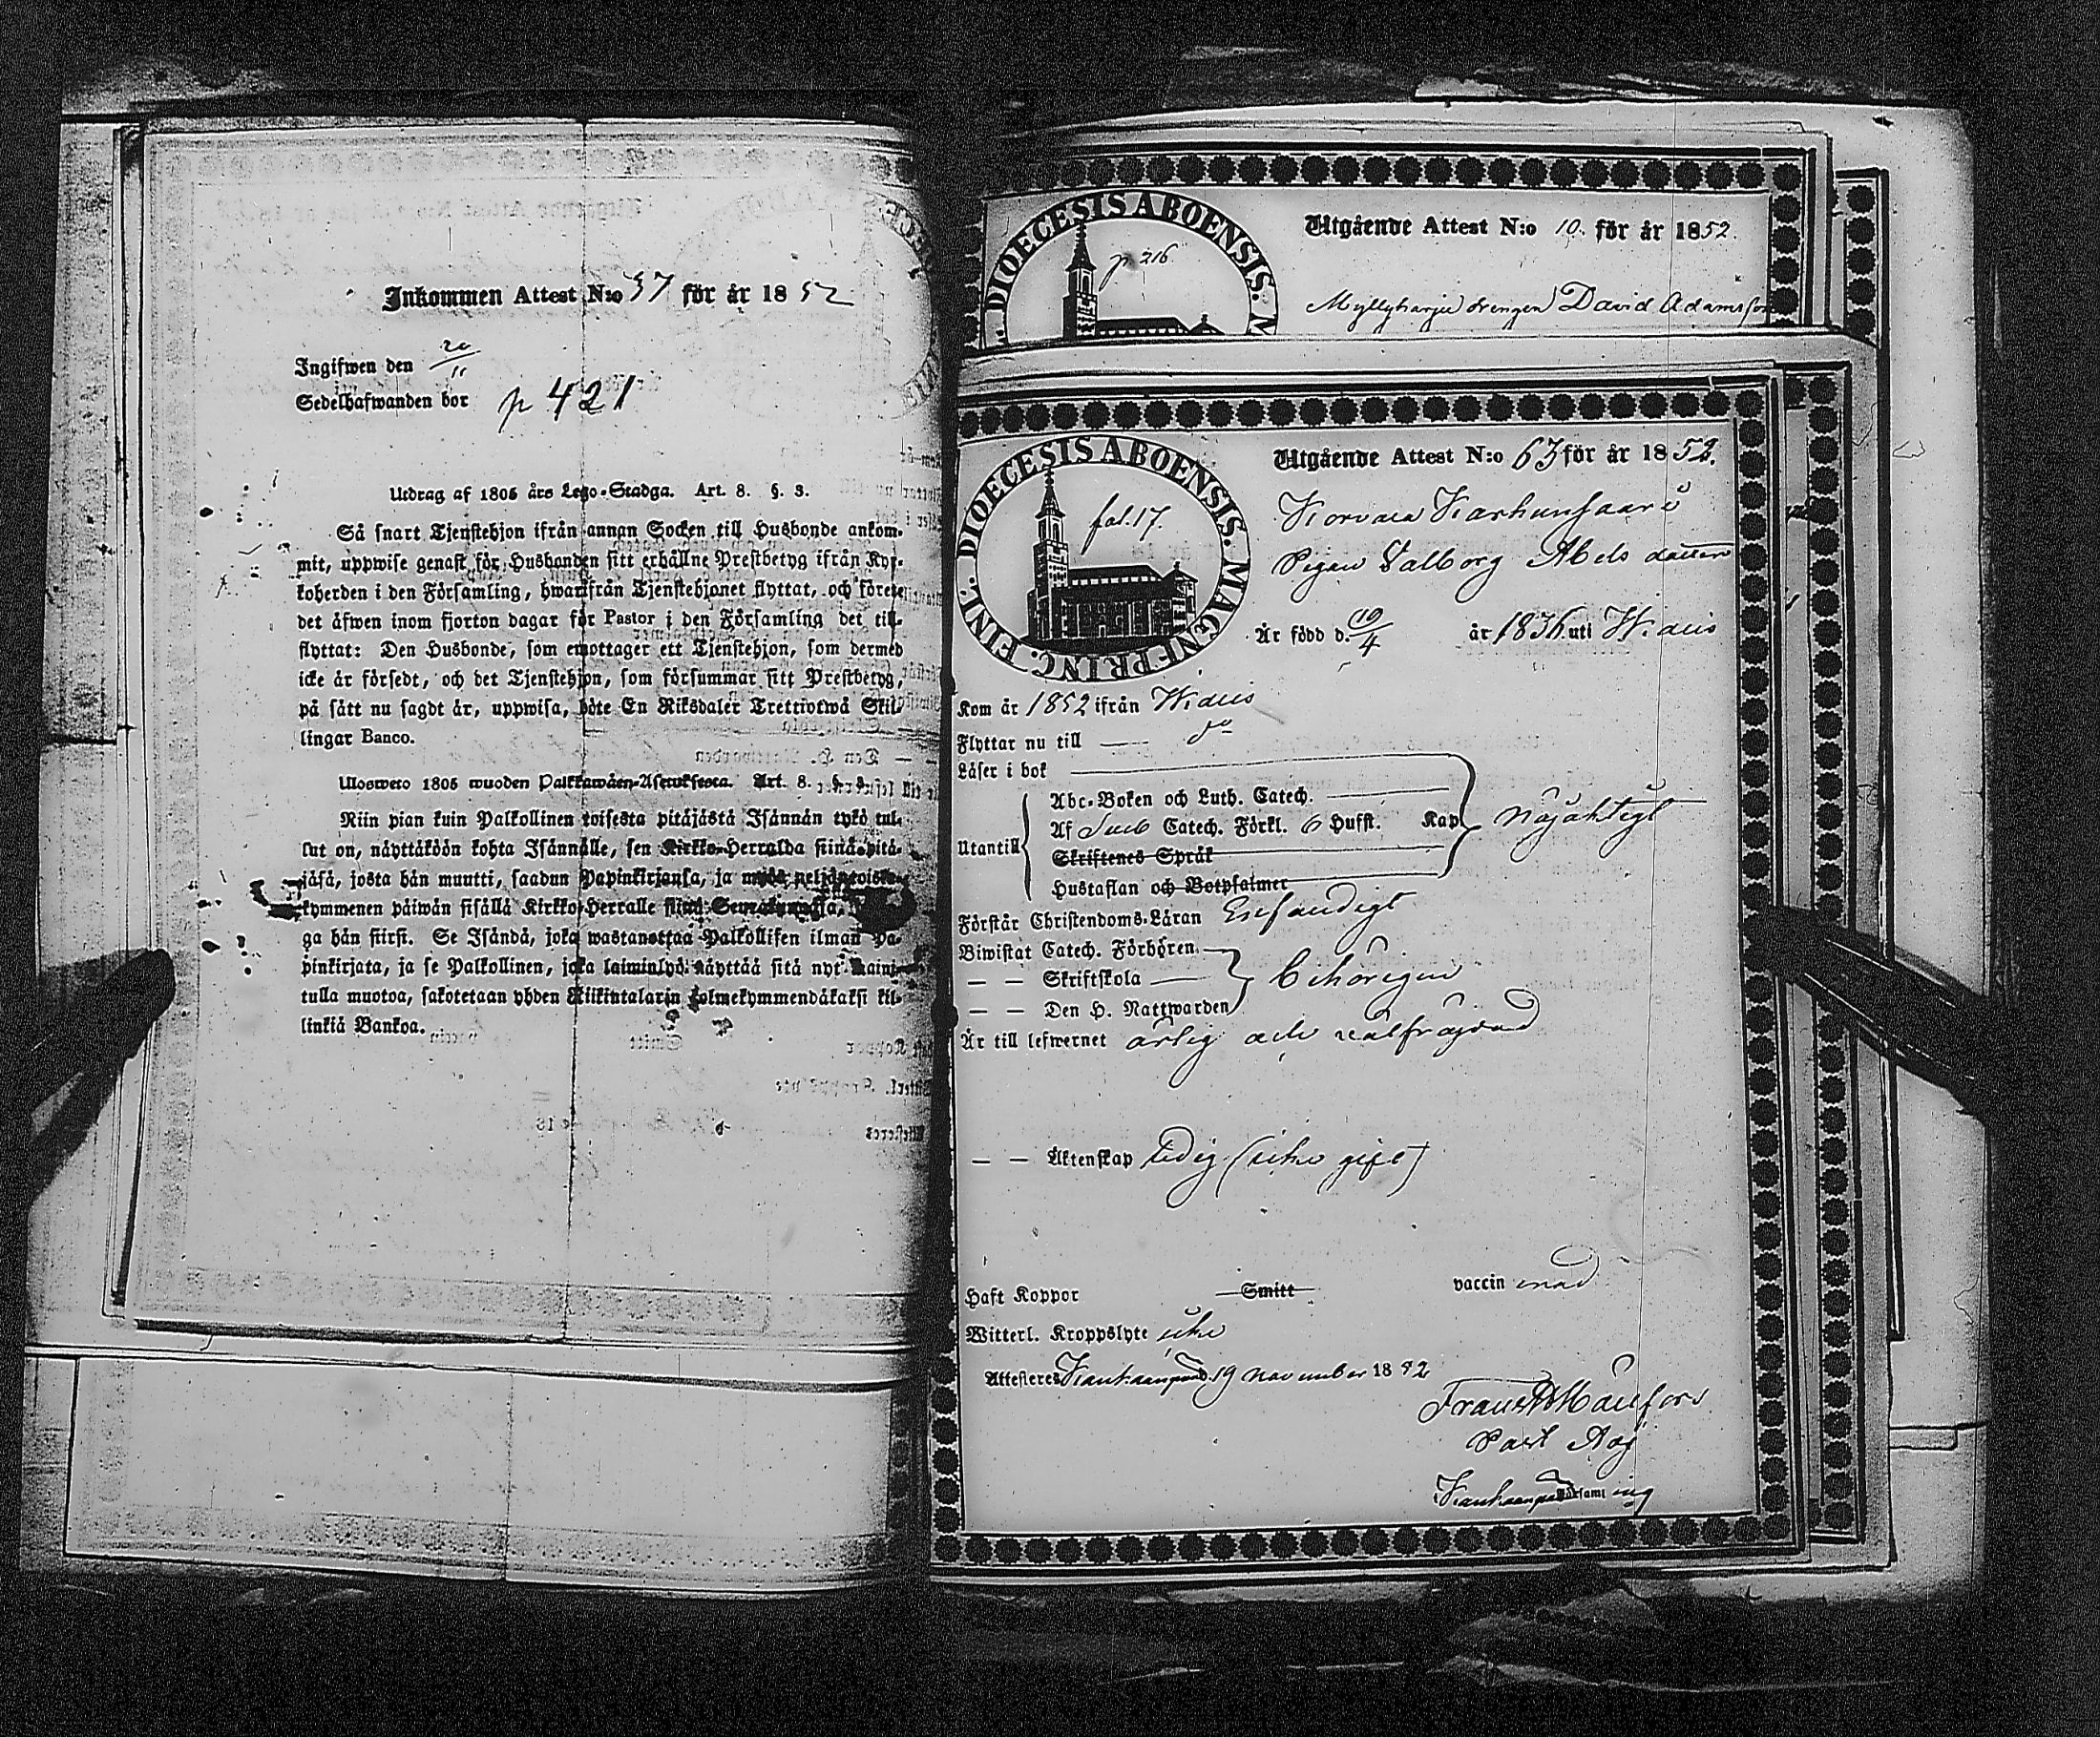 Inkommen Attest N:o 37 för år 1852
Ingifwen den 20/11
Sedelhafwanden bor p 421
Utdrag af 1805 års Lego-Stadga. Art. 8. §. 3.
Så snart Tjenstehjon ifrån annan Socken till Husbonde ankom-
mit, uppwise genast för Husbonden sitt erhållne Prestbetyg ifrån Kyr-
koherden i den Församling, hwarifrån Tjenstehjonet flyttat, och förete
det äfwen inom fjorton dagar för Pastor i den Församling det till-
flyttat: Den Husbonde, som emottager ett Tjenstehjon, som dermed
icke är försedt, och det Tjenstehjon, som försummar sitt Prestbetyg,
på sätt nu sagdt är, uppwisa, böte En Riksdaler Trettiotwå Skil-
lingar Banco.
Ulosweto 1805 wuoden Palkkawäen-Asetuksesta. Art. 8. §. 3.
Niin pian kuin Palkollinen toisesta pitäjästä Isännän tykö tul-
lut on, näyttäköön kohta Isännälle, sen Kirkko-Herralda siinä pitä-
jäsä, josta hän muutti, saadun Papinkirjansa, ja myös neljäntoista-
kymmenen päiwän sisällä Kirkko-Herralle siinä Seurakunnassa,
ga hän siirsi. Se Isändä, joka wastanottaa Palkollisen ilman Pa-
pinkirjata, ja se Palkollinen, joka laiminlyö näyttää sitä nyt maini-
tulla muotoa, sakotetaan yhden Riikintalarin kolmekymmendäkaksi kil-
linkiä Bankoa.
DIOECESIS ABOENSIS. M
p. 216
Utgående Attest N:o 10. för år 1852.
Myllyharju drengen David Adamsson
FINL. DIOECESIS ABOENSIS. MAGNI PRINC.
fol. 17.
Utgående Attest N:o 63 för år 1852.
Korvala Karhunsaari
Pigan Valborg Abels dotter
Är född d. 10/4 år 1836 uti
Kom år 1852 ifrån
Flyttar nu till — do
Läser i bok
Utantill
Abc-Boken och Luth. Catech.
Af Sveb Catech. Förkl. 6 Hufst. Kap nöjaktigt
Skriftenes Språk
Hustaflan och Botpsalmer
Förstår Christendoms-Läran Enfaldigt
Biwistat Catech. Förhören
— — Skriftskola — behörigen
— — Den H. Nattwarden
Är till lefwernet ärlig och välfrägdad
— — Äktenskap ledig (icke gift)
Haft Koppor Smitt vaccin erad
Witterl. Kroppslyte icke
Attesteres Kankaanpää 19 november 1852
Past Adj
Kankaanpää Församling